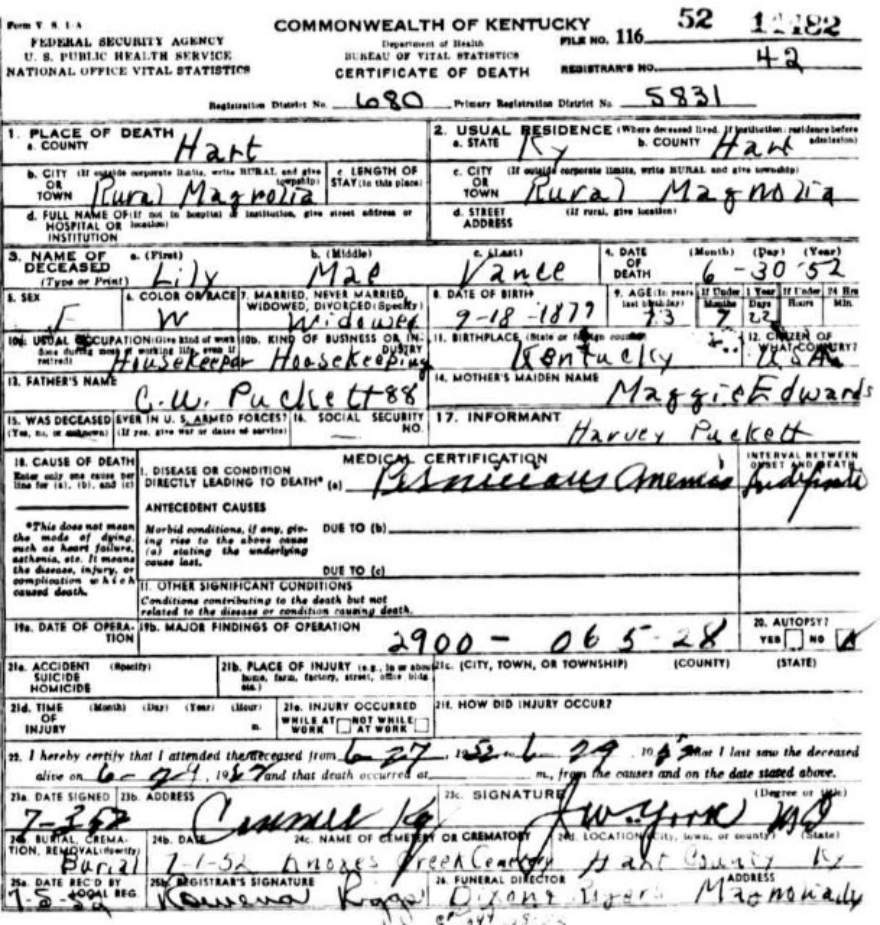 Form V. S. 1-A
FEDERAL SECURITY AGENCY
U. S. PUBLIC HEALTH SERVICE
NATIONAL OFFICE VITAL STATISTICS
COMMONWEALTH OF KENTUCKY
Department of Health
BUREAU OF VITAL STATISTICS
CERTIFICATE OF DEATH
FILE NO. 116 52
REGISTRAR'S NO. 42
Registration District No. 680 Primary Registration District No. 5831
1. PLACE OF DEATH
a. COUNTY Hart
2. USUAL RESIDENCE (Where deceased lived. If institution: residence before admission)
a. STATE Ky b. COUNTY Hart
b. CITY (If outside corporate limits, write RURAL and give township) OR TOWN Rural Magnolia
c. LENGTH OF STAY (in this place)
c. CITY (If outside corporate limits, write RURAL and give township) OR TOWN Rural Magnolia
d. FULL NAME OF (If not in hospital or institution, give street address or location) HOSPITAL OR INSTITUTION
d. STREET ADDRESS (If rural, give location)
3. NAME OF DECEASED (Type or Print)
a. (First) Lily b. (Middle) Mae c. (Last) Vance
4. DATE OF DEATH (Month) (Day) (Year) 6-30-52
5. SEX F
6. COLOR OR RACE W
7. MARRIED, NEVER MARRIED, WIDOWED, DIVORCED (Specify) Widowed
8. DATE OF BIRTH 9-18-1879
9. AGE (In years last birthday) 73 If Under 1 Year Months 7 Days 22 If Under 24 Hrs Hours Min.
10a. USUAL OCCUPATION (Give kind of work done during most of working life, even if retired) Housekeeper
10b. KIND OF BUSINESS OR INDUSTRY Hoosekeeping
11. BIRTHPLACE (State or foreign country) Kentucky
12. CITIZEN OF WHAT COUNTRY? USA
13. FATHER'S NAME C.W. Puckett 88
14. MOTHER'S MAIDEN NAME Maggie Edwards
15. WAS DECEASED EVER IN U. S. ARMED FORCES? (Yes, no, or unknown) (If yes, give war or dates of service)
16. SOCIAL SECURITY NO.
17. INFORMANT Harvey Puckett
18. CAUSE OF DEATH
Enter only one cause per line for (a), (b), and (c)
MEDICAL CERTIFICATION
INTERVAL BETWEEN ONSET AND DEATH
I. DISEASE OR CONDITION DIRECTLY LEADING TO DEATH* (a) Pernicious Anemia Indefinite
*This does not mean the mode of dying, such as heart failure, asthenia, etc. It means the disease, injury, or complication which caused death.
ANTECEDENT CAUSES
Morbid conditions, if any, giving rise to the above cause (a) stating the underlying cause last.
DUE TO (b)
DUE TO (c)
II. OTHER SIGNIFICANT CONDITIONS
Conditions contributing to the death but not related to the disease or condition causing death.
19a. DATE OF OPERATION
19b. MAJOR FINDINGS OF OPERATION
2900 - 065-28
20. AUTOPSY?
YES NO
21a. ACCIDENT SUICIDE HOMICIDE (Specify)
21b. PLACE OF INJURY (e.g., in or about home, farm, factory, street, office bldg. etc.)
21c. (CITY, TOWN, OR TOWNSHIP) (COUNTY) (STATE)
21d. TIME OF INJURY (Month) (Day) (Year) (Hour) m.
21e. INJURY OCCURRED WHILE AT WORK NOT WHILE AT WORK
21f. HOW DID INJURY OCCUR?
22. I hereby certify that I attended the deceased from 6-27, 1952 to 6-29, 1952 that I last saw the deceased
alive on 6-29, 19 and that death occurred at m., from the causes and on the date stated above.
23a. DATE SIGNED
23b. ADDRESS Ky
23c. SIGNATURE J W York MD (Degree or title)
24a. BURIAL, CREMATION, REMOVAL (Specify) Burial
24b. DATE 7-1-52
24c. NAME OF CEMETERY OR CREMATORY Knoxes Creek Cemetery
24d. LOCATION (City, town, or county) (State) Hart County Ky
25a. DATE REC'D BY LOCAL REG.
25b. REGISTRAR'S SIGNATURE Rowena Riggs
26. FUNERAL DIRECTOR ADDRESS